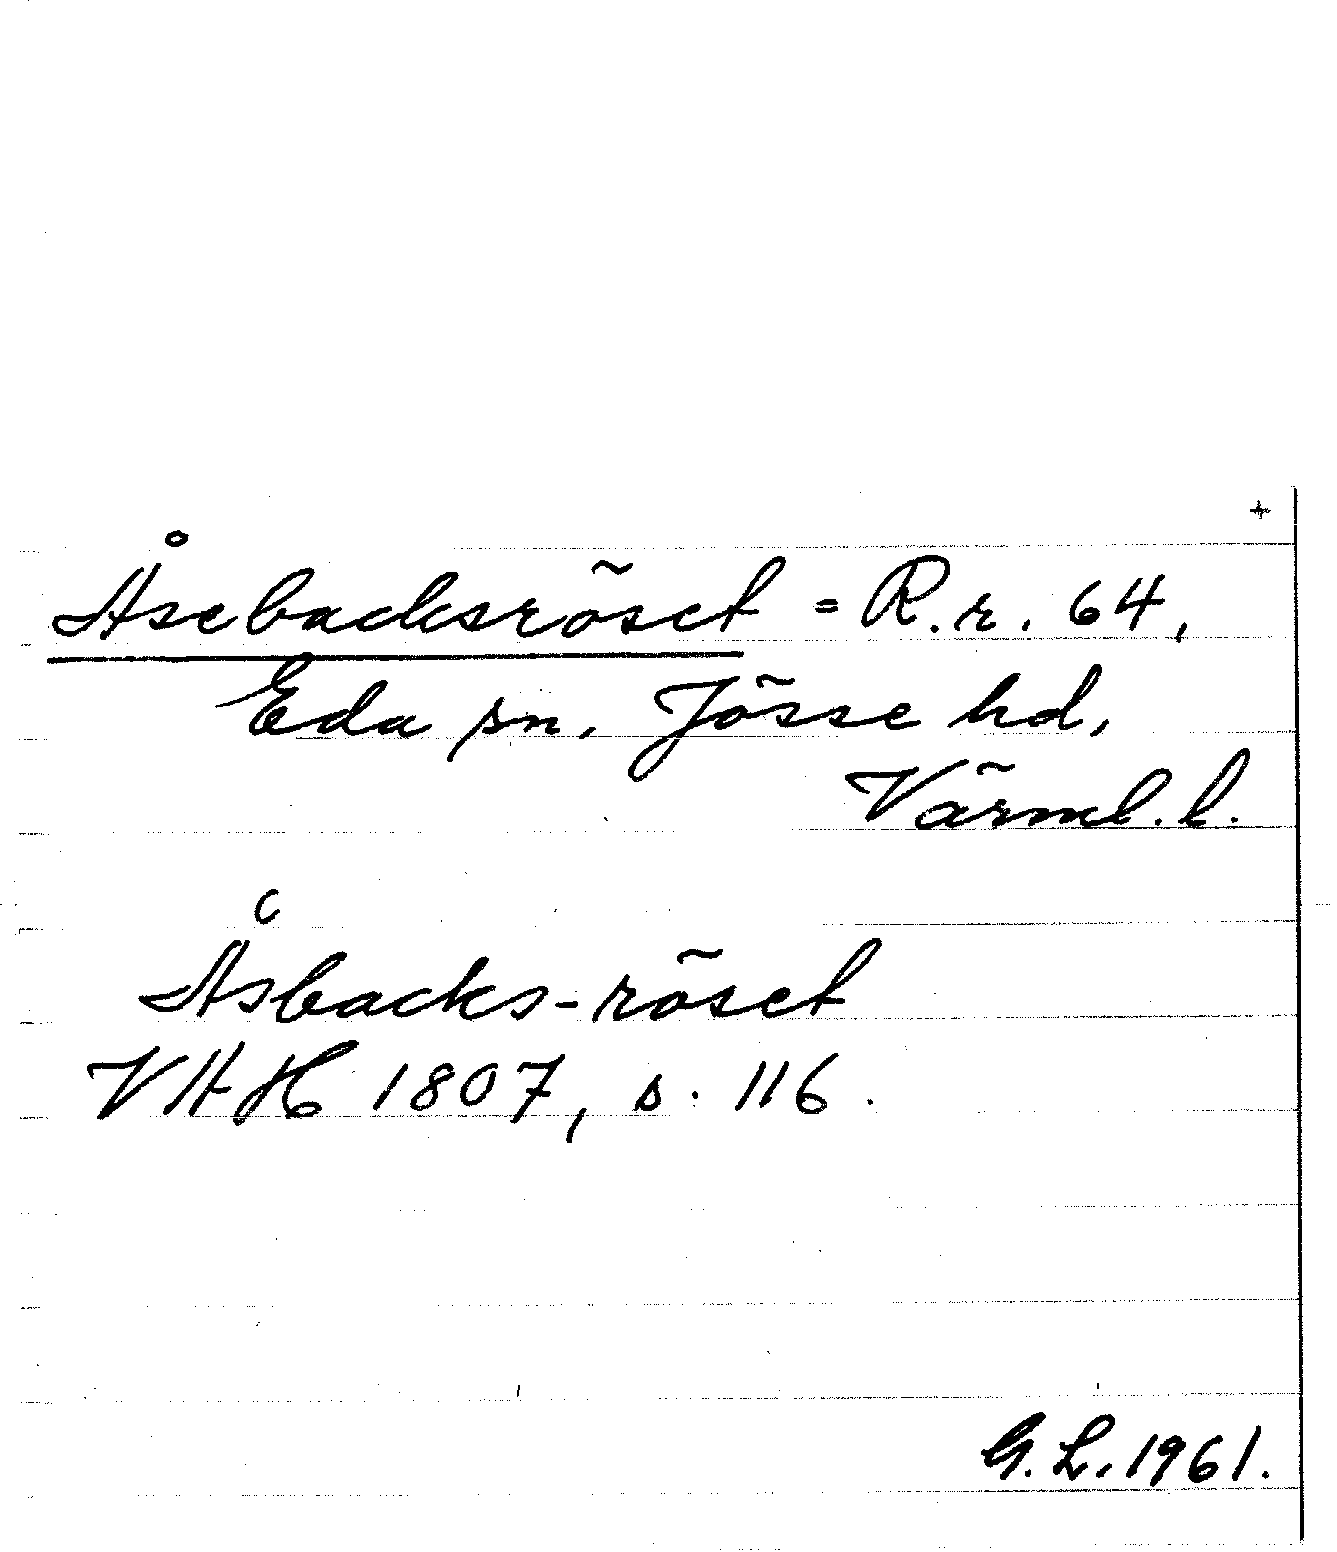 Åsebacksröset = R.r. 64,
Eda sn, Jösse hd,
Värml. l.
Åsbacks-röset
VAH 1807, s. 116.
G. L. 1961.